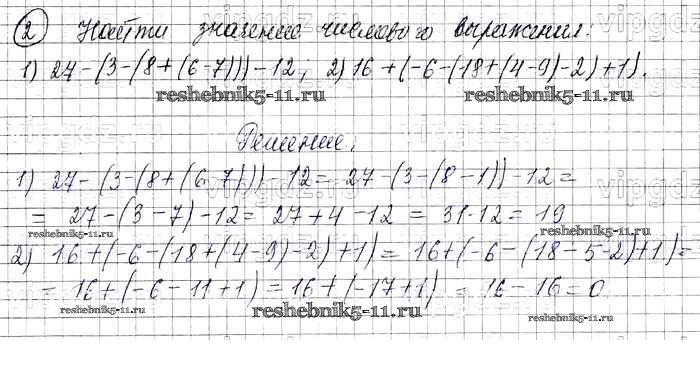 2 Найти значение числового выражения.
1) 27-(3-(8+(6-7)))-12; 2) 16+(-6-(18+(4-9)-2)+1).
reshebnik5-11.ru reshebnik5-11.ru
Решение.
1) 27-(3-(8+(6-7)))-12= 27-(3-(8-1))-12=
= 27-(3-7)-12= 27+4-12 = 31-12= 19
reshebnik5-11.ru reshebnik5-11.ru
2) 16+(-6-(18+(4-9)-2)+1)= 16+(-6-(18-5-2)+1)=
= 16+(-6-11+1)=16+(-17+1) = 16-16=0
reshebnik5-11.ru reshebnik5-11.ru reshebnik5-11.ru